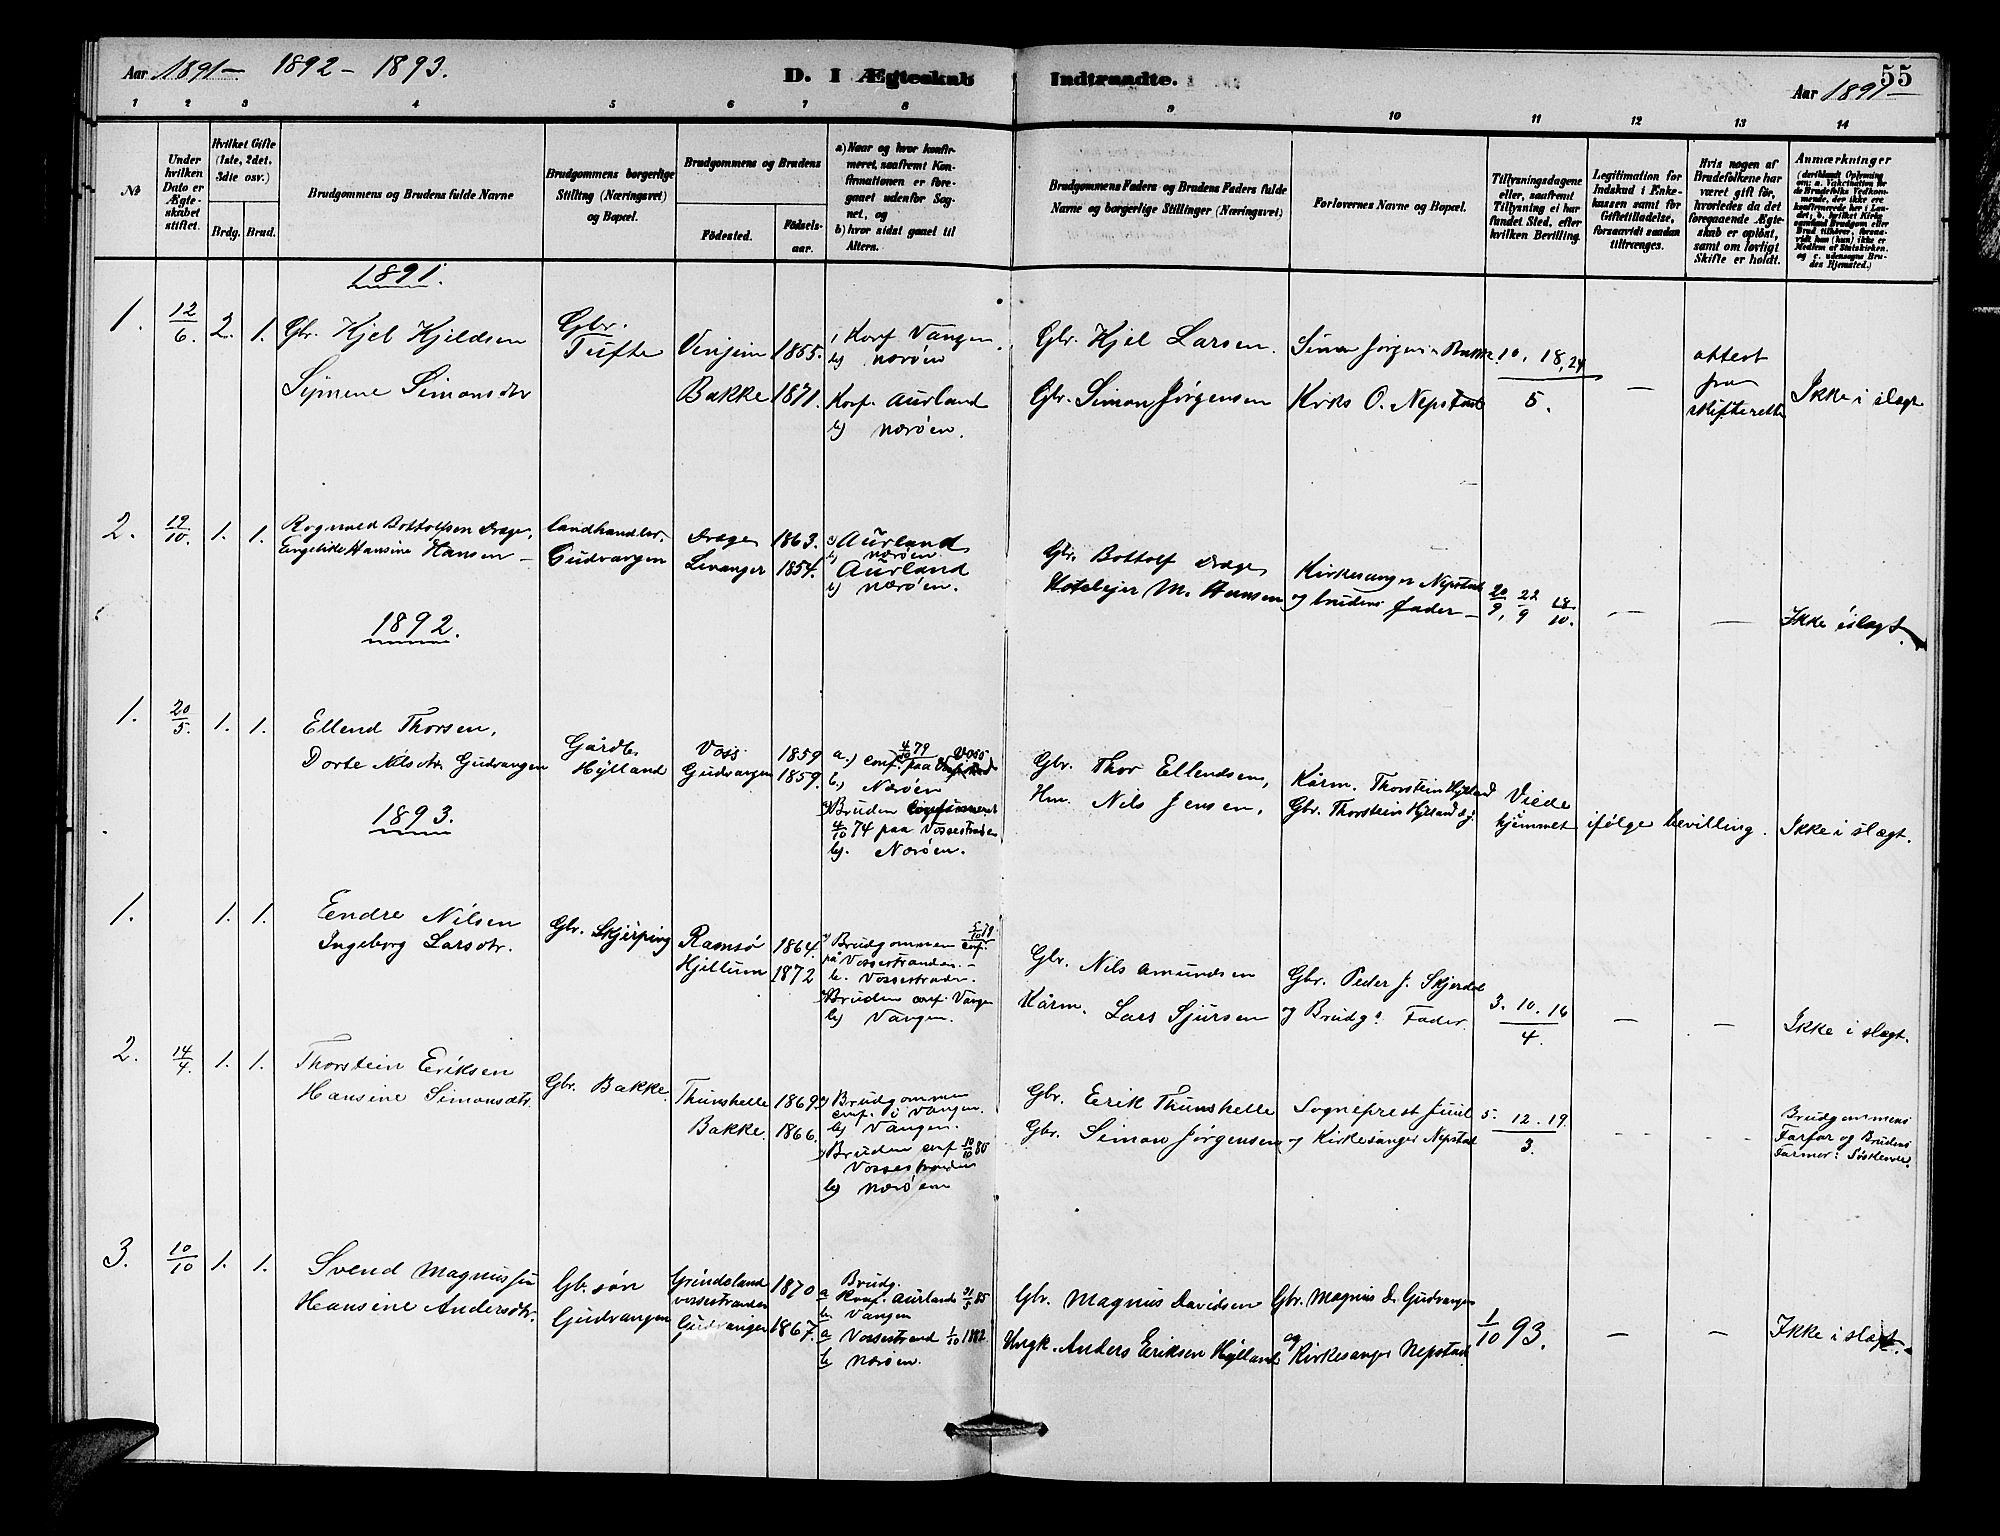 Aar 1891– 1892 – 1893.
D. I Ægteskab Indtraadte.
55
Aar 1891–
1 2 3 4 5 6 7 8 9 10 11 12 13 14
№
Under hvilken Dato er Ægteskabet stiftet.
Hvilket Gifte (1ste, 2det, 3die osv.)
Brdg. Brud.
Brudgommens og Brudens fulde Navne
Brudgommens borgerlige Stilling (Næringsvei) og Bopæl.
Brudgommens og Brudens
Fødested. Fødselsaar.
a) Naar og hvor konfirmeret, saafremt Konfirmationen er foregaaet udenfor Sognet, og
b) hvor sidst gaaet til Altern.
Brudgommens Faders og Brudens Faders fulde Navne og borgerlige Stillinger (Næringsvei)
Forlovernes Navne og Bopæl.
Tillysningsdagene eller, saafremt Tillysning ei har fundet Sted, efter hvilken Bevilling.
Legitimation for Indskud i Enkekassen samt for Giftetilladelse, forsaavidt saadan tiltrænges.
Hvis nogen af Brudefolkene har været gift før, hvorledes da det foregaaende Ægteskab er opløst, samt om lovligt Skifte er holdt.
Anmærkninger
1891.
1. 12/6 2. 1. Gbr. Kjel Kjeldsen
Gbr. Tufte
Vinjum 1855.
Konf. Vangen.
b) Nærøen
Gbr. Kjel Larsen.
10, 18, 24
5.
Symene Simonsdtr
Bakke 1871.
Konf. Aurland
b) Nærøen.
Gbr. Simon Jørgensen
Kirks O. Nepstad
–
attest fra skifteretten
Ikke i slægt
2. 19/10 1. 1. Bottolfsen Drage,
Hansine Hansen –
Landhandler. Gudvangen
Drage 1863.
Levanger 1854.
a) Aurland
b) Nærøen
Aurland
b) Nærøen.
Gbr. Bottolf Drage
Hotelejer M. Hansen
Kirkesanger Nepstad
og brudens Fader –
20/9, 22/9 18/10.
–
–
Ikke i slægt.
1892.
1. 20/5. 1. 1. Ellend Thorsen,
Dorte Nilsdtr. Gudvangen
Gårdb. Hylland
Voss 1859
Gudvangen 1859.
a.) conf. 4/10 79 paa Voss
b) Nærøen
a) Bruden confirmeret
4/10 74 paa Vossestranden
b). Nærøen.
Gbr. Thor Ellendsen,
Hm. Nils Jensen,
Kårm. Thorstein Hylland
Gbr. Thorstein Hylland d.y.
Viede hjemmet ifølge bevilling.
Ikke i slægt.
1893.
1. 1. 1. Endre Nilsen
Ingeborg Larsdtr.
Gbr. Skjerping
Ramsø 1864.
Hjellum 1872
a) Brudgommen conf.
på Vossestranden. –
b. Vossestranden.
a) Bruden conf. Vangen
b) Vangen.
Gbr. Nils Amundsen
Kårm. Lars Sjursen
Gbr. Peder J. Skjerdal
og Brudgs. Fader.
3. 10. 16
4.
–
–
Ikke i slægt.
2. 14/4. 1. 1. Thorstein Eriksen
Hansine Simonsdtr.
Gbr. Bakke.
Thunshelle 1869.
Bakke. 1866.
a) Brudgommen
conf. i Vangen.
b) Vangen.
a) Bruden conf 10/10 80
Vossestranden
b) Nærøen
Gbr. Erik Thunshelle
Gbr. Simon Jørgensen
Sogneprest Juul
og Kirkesanger Nepstad
5. 12. 19.
3.
Brudgommens
Farfar og Brudens
Farmor: Søskende.
3. 10/10 1. 1. Svend Magnussen
Hansine Andersdtr.
Gb. søn Gudvangen
Grindeland Vossestranden 1870
Gudvangen 1867.
Brudg.
a Konf. Aurland 31/5 85
b Vangen
a Vossestrand 1/10 1882
b Nærøen.
Gbr. Magnus Davidsen
Ungk. Anders Eriksen Hylland
Gbr. Magnus D. Gudvangen
og Kirkesanger Nepstad
1/10 93.
–
–
Ikke i slægt.